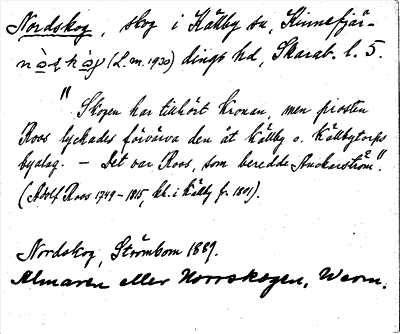 Nordskog, skog i Källby sn, Kinnefjär-
(L.m. 1930) dings hd, Skarab. l. 5.
" Skogen har tillhört kronan, men prosten
Roos lyckades förvärva den åt Källby o. Källbytorps
byalag. – Det var Roos, som beredde Anckarström".
(Adolf Roos 1749–1815, kh. i Källby fr. 1801).
Nordskog, Strömbom 1889.
Allmaren eller Norrskogen, Werm.